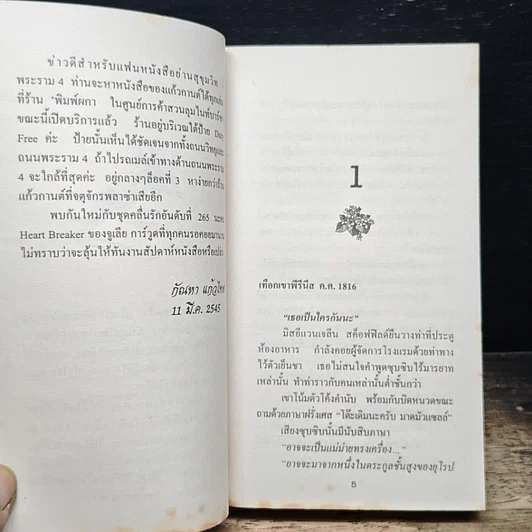 ข่าวดีสำหรับแฟนหนังสือย่านสุขุมวิท
พระราม 4 ท่านจะหาหนังสือของแก้วกานต์ได้ทุกเล่ม
ที่ร้าน 'พิมพ์ผกา ในศูนย์การค้าสวนลุมไนท์บาร์ซา
ขณะนี้เปิดบริการแล้ว ร้านอยู่บริเวณใต้ป้าย Duty
Free ค่ะ ป้ายนั้นเห็นได้ชัดเจนจากทั้งถนนวิทยุและ
ถนนพระราม 4 ถ้าไปรถเมล์เข้าทางด้านถนนพระราม
4 จะใกล้ที่สุดค่ะ อยู่กลางๆล็อคที่ 3 หาง่ายกว่าร้าน
แก้วกานต์ที่จตุจักรพลาซ่าเสียอีก
พบกันใหม่กับชุดคลื่นรักอันดับที่ 265 นะคะ
Heart Breaker ของจูเลีย การ์วูดที่ทุกคนรอคอยมานาน
ไม่ทราบว่าจะลุ้นให้ทันงานสัปดาห์หนังสือหรือเปล่า
กัณหา แก้วไทย
11 มี.ค. 2545
1
เทือกเขาพีรีนีส ค.ศ. 1816
"เธอเป็นใครกันนะ"
มิสอีแวนเจลีน สค็อฟฟิลด์ยืนวางท่าที่ประตู
ห้องอาหาร กำลังคอยผู้จัดการโรงแรมด้วยท่าทาง
ไว้ตัวเย็นชา เธอไม่สนใจคำพูดซุบซิบไร้มารยาท
เหล่านั้น ทำท่าราวกับคนเหล่านั้นต่ำชั้นกว่า
เขาโน้มตัวโค้งคำนับ พร้อมกับบิดหนวดขณะ
ถามด้วยภาษาฝรั่งเศส "โต๊ะเดิมนะครับ มาดมัวแซลล์"
เสียงซุบซิบนั้นมีนับสิบภาษา
"อาจจะเป็นแม่ม่ายทรงเครื่อง..."
"อาจจะมาจากหนึ่งในตระกูลชั้นสูงของยุโรป